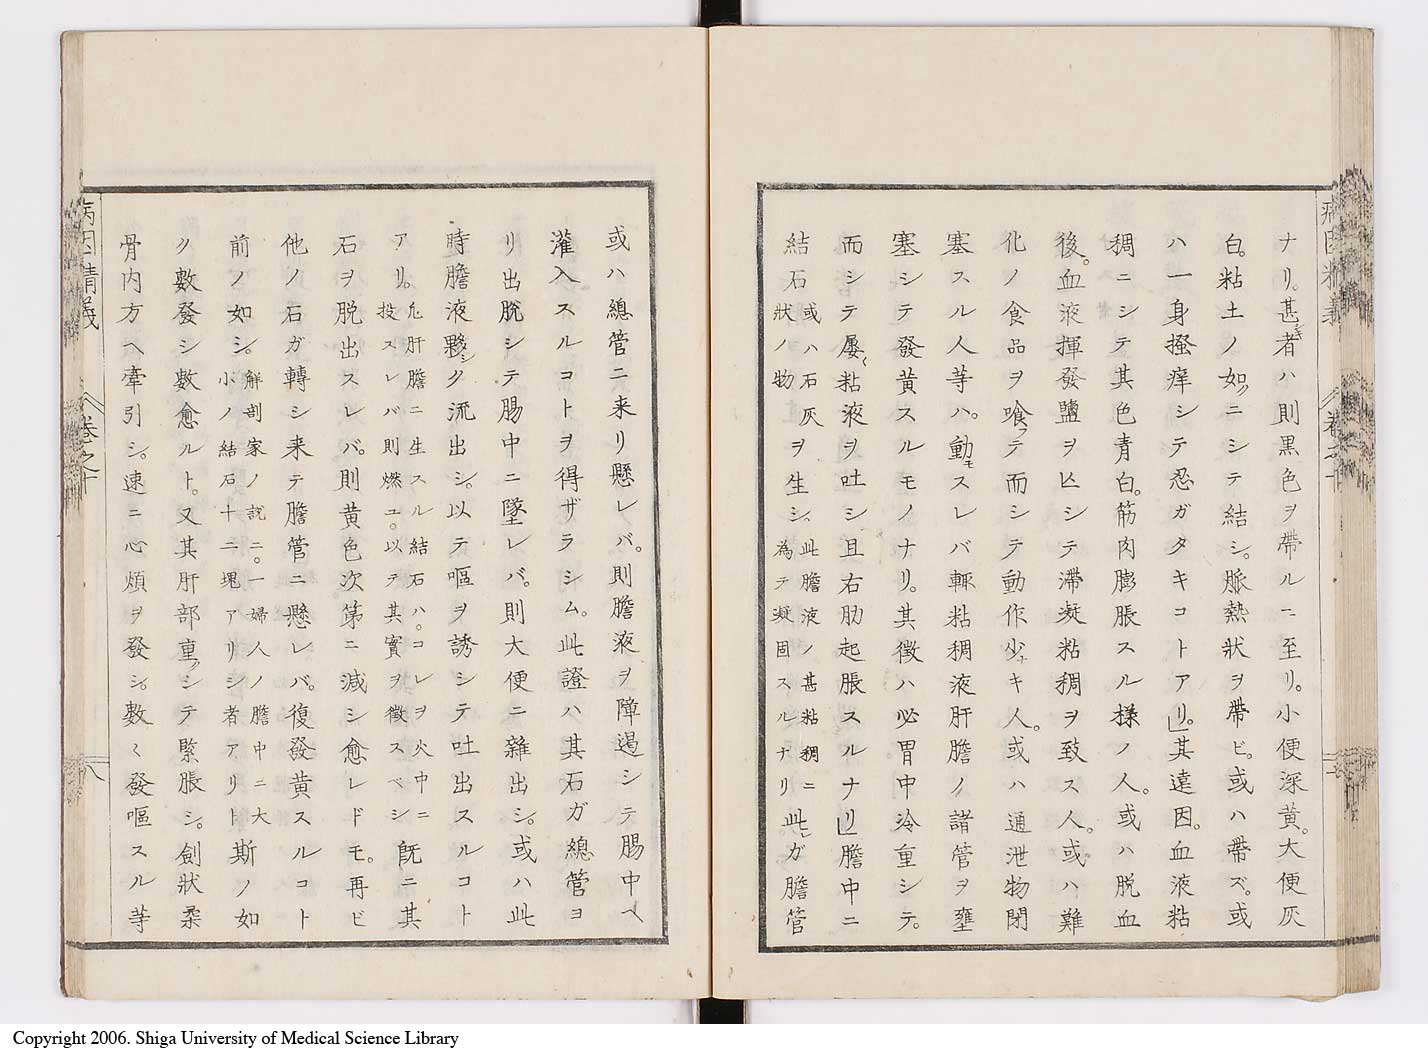 ナリ。甚キ者ハ則黒色ヲ帶ルニ至リ。小便深黄。大便灰
白。粘土ノ如クニシテ結シ。脈熱状ヲ帶ビ。或ハ帶ズ。或
ハ一身搔痒シテ忍ガタキコトアリ。」其遠因。血液粘
稠ニシテ其色青白。筋肉膨脹スル様ノ人。或ハ脱血
後。血液揮發鹽ヲ亡シテ滞凝粘稠ヲ致ス人。或ハ難
化ノ食品ヲ喰テ而シテ動作少ナキ人。或ハ通泄物閉
塞スル人等ハ。動モスレバ輙粘稠液肝膽ノ諸管ヲ壅
塞シテ發黄スルモノナリ。其徴ハ必胃中冷重シテ。
而シテ屡〻粘液ヲ吐シ且右肋起脹スルナリ」膽中ニ
結石或ハ石灰状ノ物ヲ生シ、此膽液ノ甚粘稠ニ為テ凝固スルナリ此レガ膽管
或ハ總管ニ来リ懸レバ。則膽液ヲ障遏シテ腸中ヘ
灌入スルコトヲ得ザラシム。此證ハ其石ガ總管ヨ
リ出脱シテ腸中ニ墜レバ。則大便ニ雜出シ。或ハ此
時膽液夥シク流出シ。以テ嘔ヲ誘シテ吐出スルコト
アリ。凢肝膽ニ生スル結石ハ。コレヲ火中ニ投スレバ則燃ユ。以テ其實ヲ徴スベシ既ニ其
石ヲ脱出スレバ。則黄色次第ニ減シ愈レドモ。再ビ
他ノ石ガ轉シ来テ膽管ニ懸レバ。復發黄スルコト
前ノ如シ。解剖家ノ説ニ。一婦人ノ膽中ニ大小ノ結石十二塊アリシ者アリト斯ノ如
ノ數發シ數愈ルト。又其肝部重クシテ緊脹シ。劍状柔
骨内方ヘ牽引シ。速ニ心煩ヲ發シ。數〻發嘔スル等
病因精義
卷之十
八
病因精義
卷之十
Copyright 2006. Shiga University of Medical Science Library